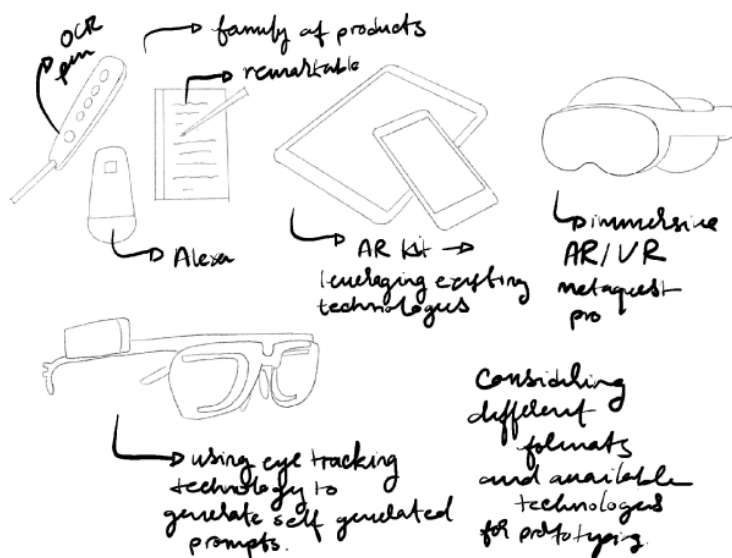 OCR
pen
family of products
remarkable
Alexa
AR Kit →
leveraging existing
technologies
immersive
AR/VR
metaquest
pro
using eye tracking
technology to
generate self generated
prompts.
Considering
different
formats
and available
technologies
for prototyping.